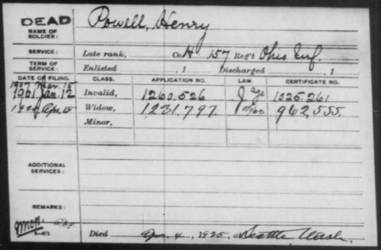 DEAD
NAME OF SOLDIER: Powell, Henry
SERVICE: Late rank, Co. H 157 Reg't Ohio Inf.
TERM OF SERVICE: Enlisted , 1 Discharged , 1
DATE OF FILING. CLASS. APPLICATION NO. LAW. CERTIFICATE NO.
Jan. 12 Invalid, 1260.526 1025.261
Apr. 15 Widow, 1221.797. 962,555.
Minor,
ADDITIONAL SERVICES:
REMARKS:
Died Apr. 4, 1925, Seattle Wash.